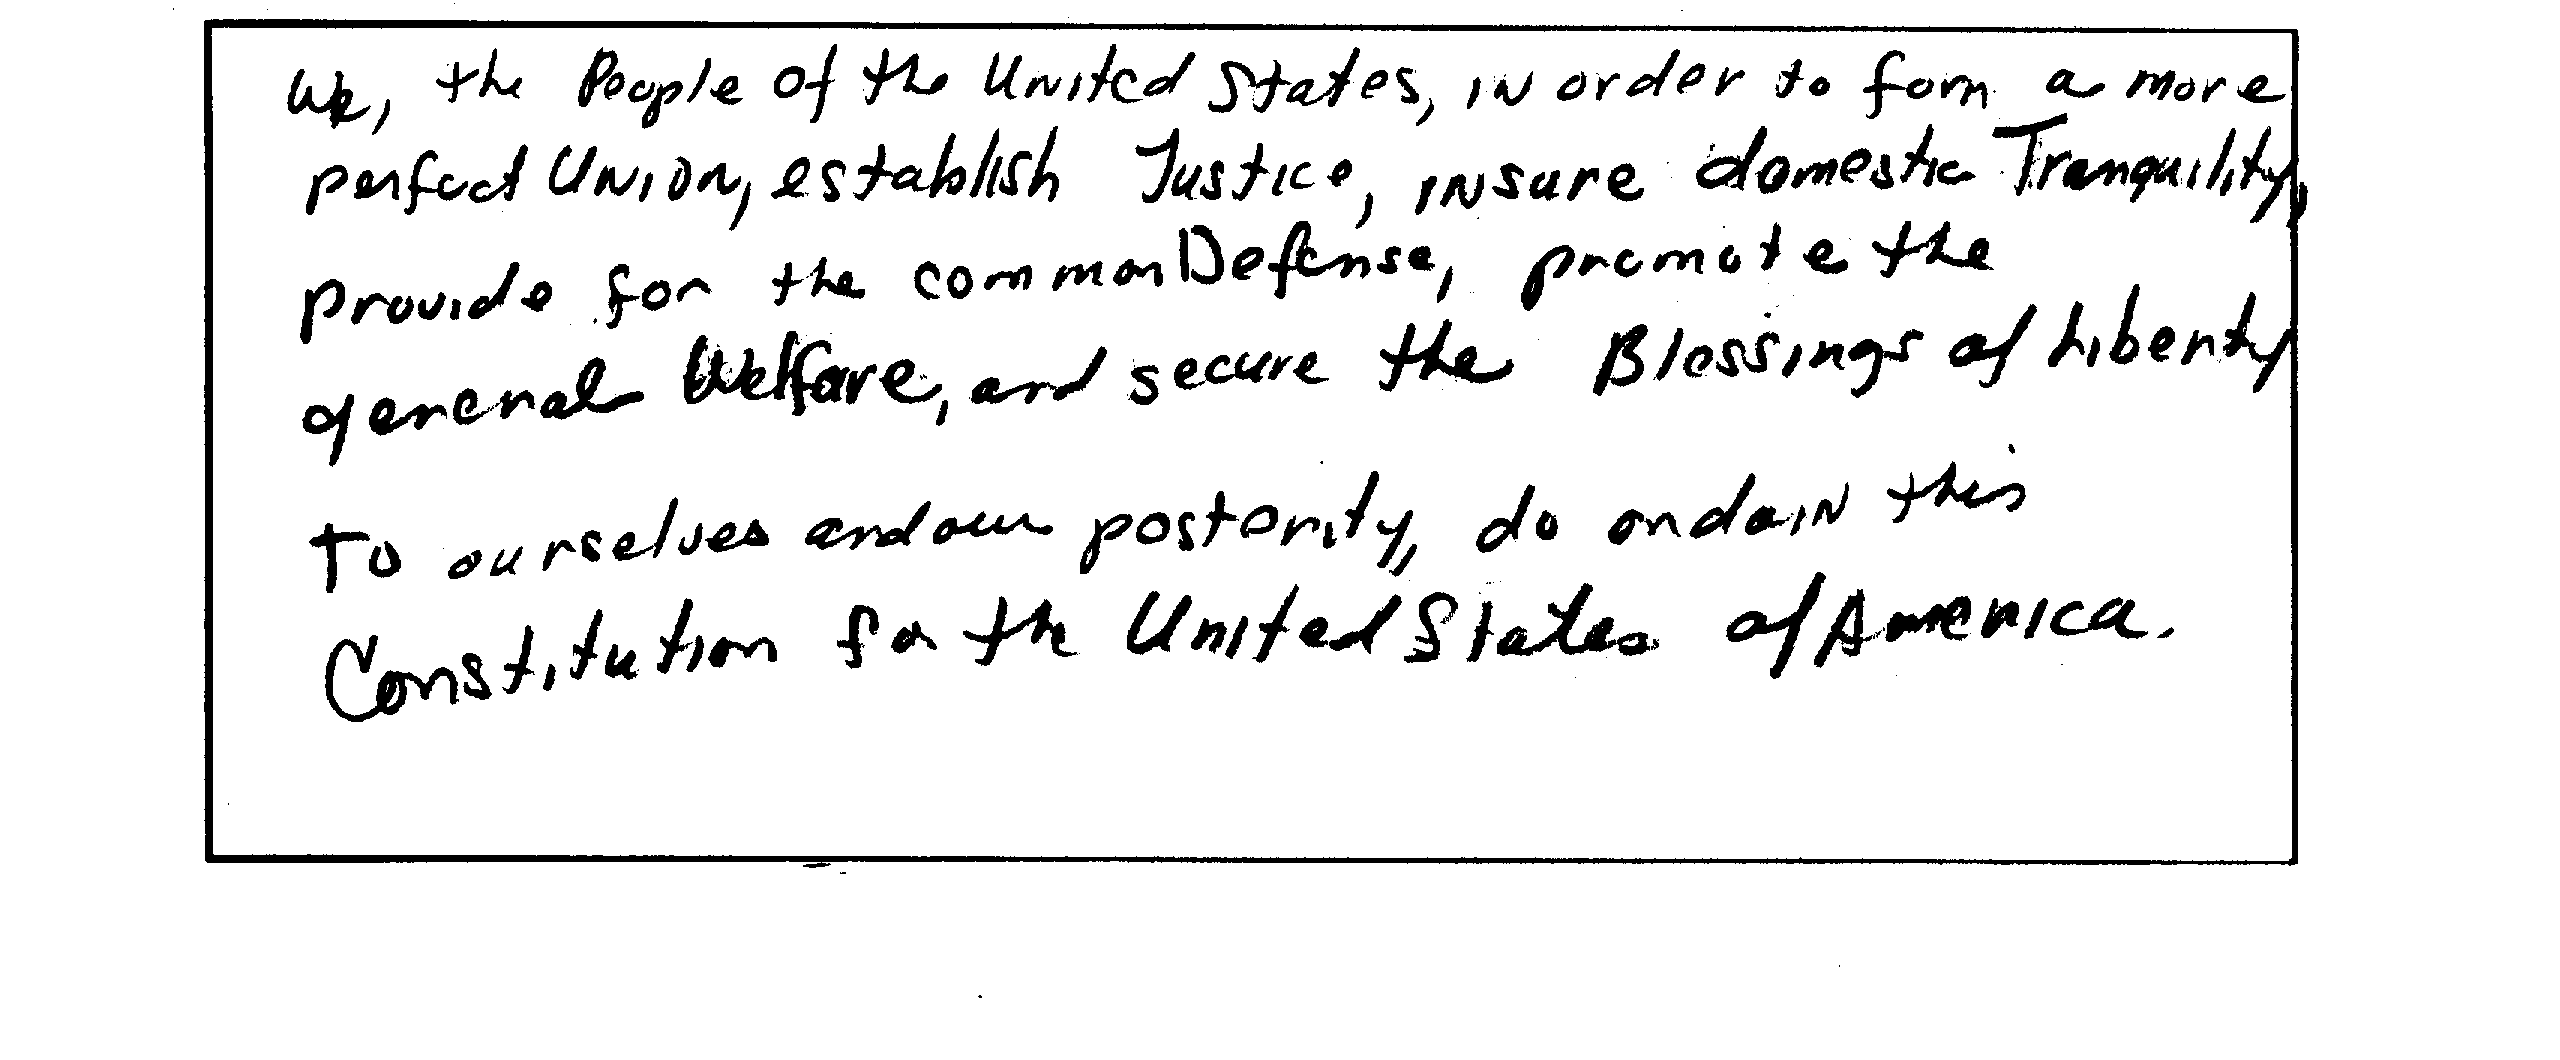 We, the People of the United States, in order to form a more
perfect Union, establish Justice, insure domestic Tranquility,
provide for the common Defense, promote the
general Welfare, and secure the Blessings of Liberty
to ourselves and our posterity, do ordain this
Constitution for the United States of America.